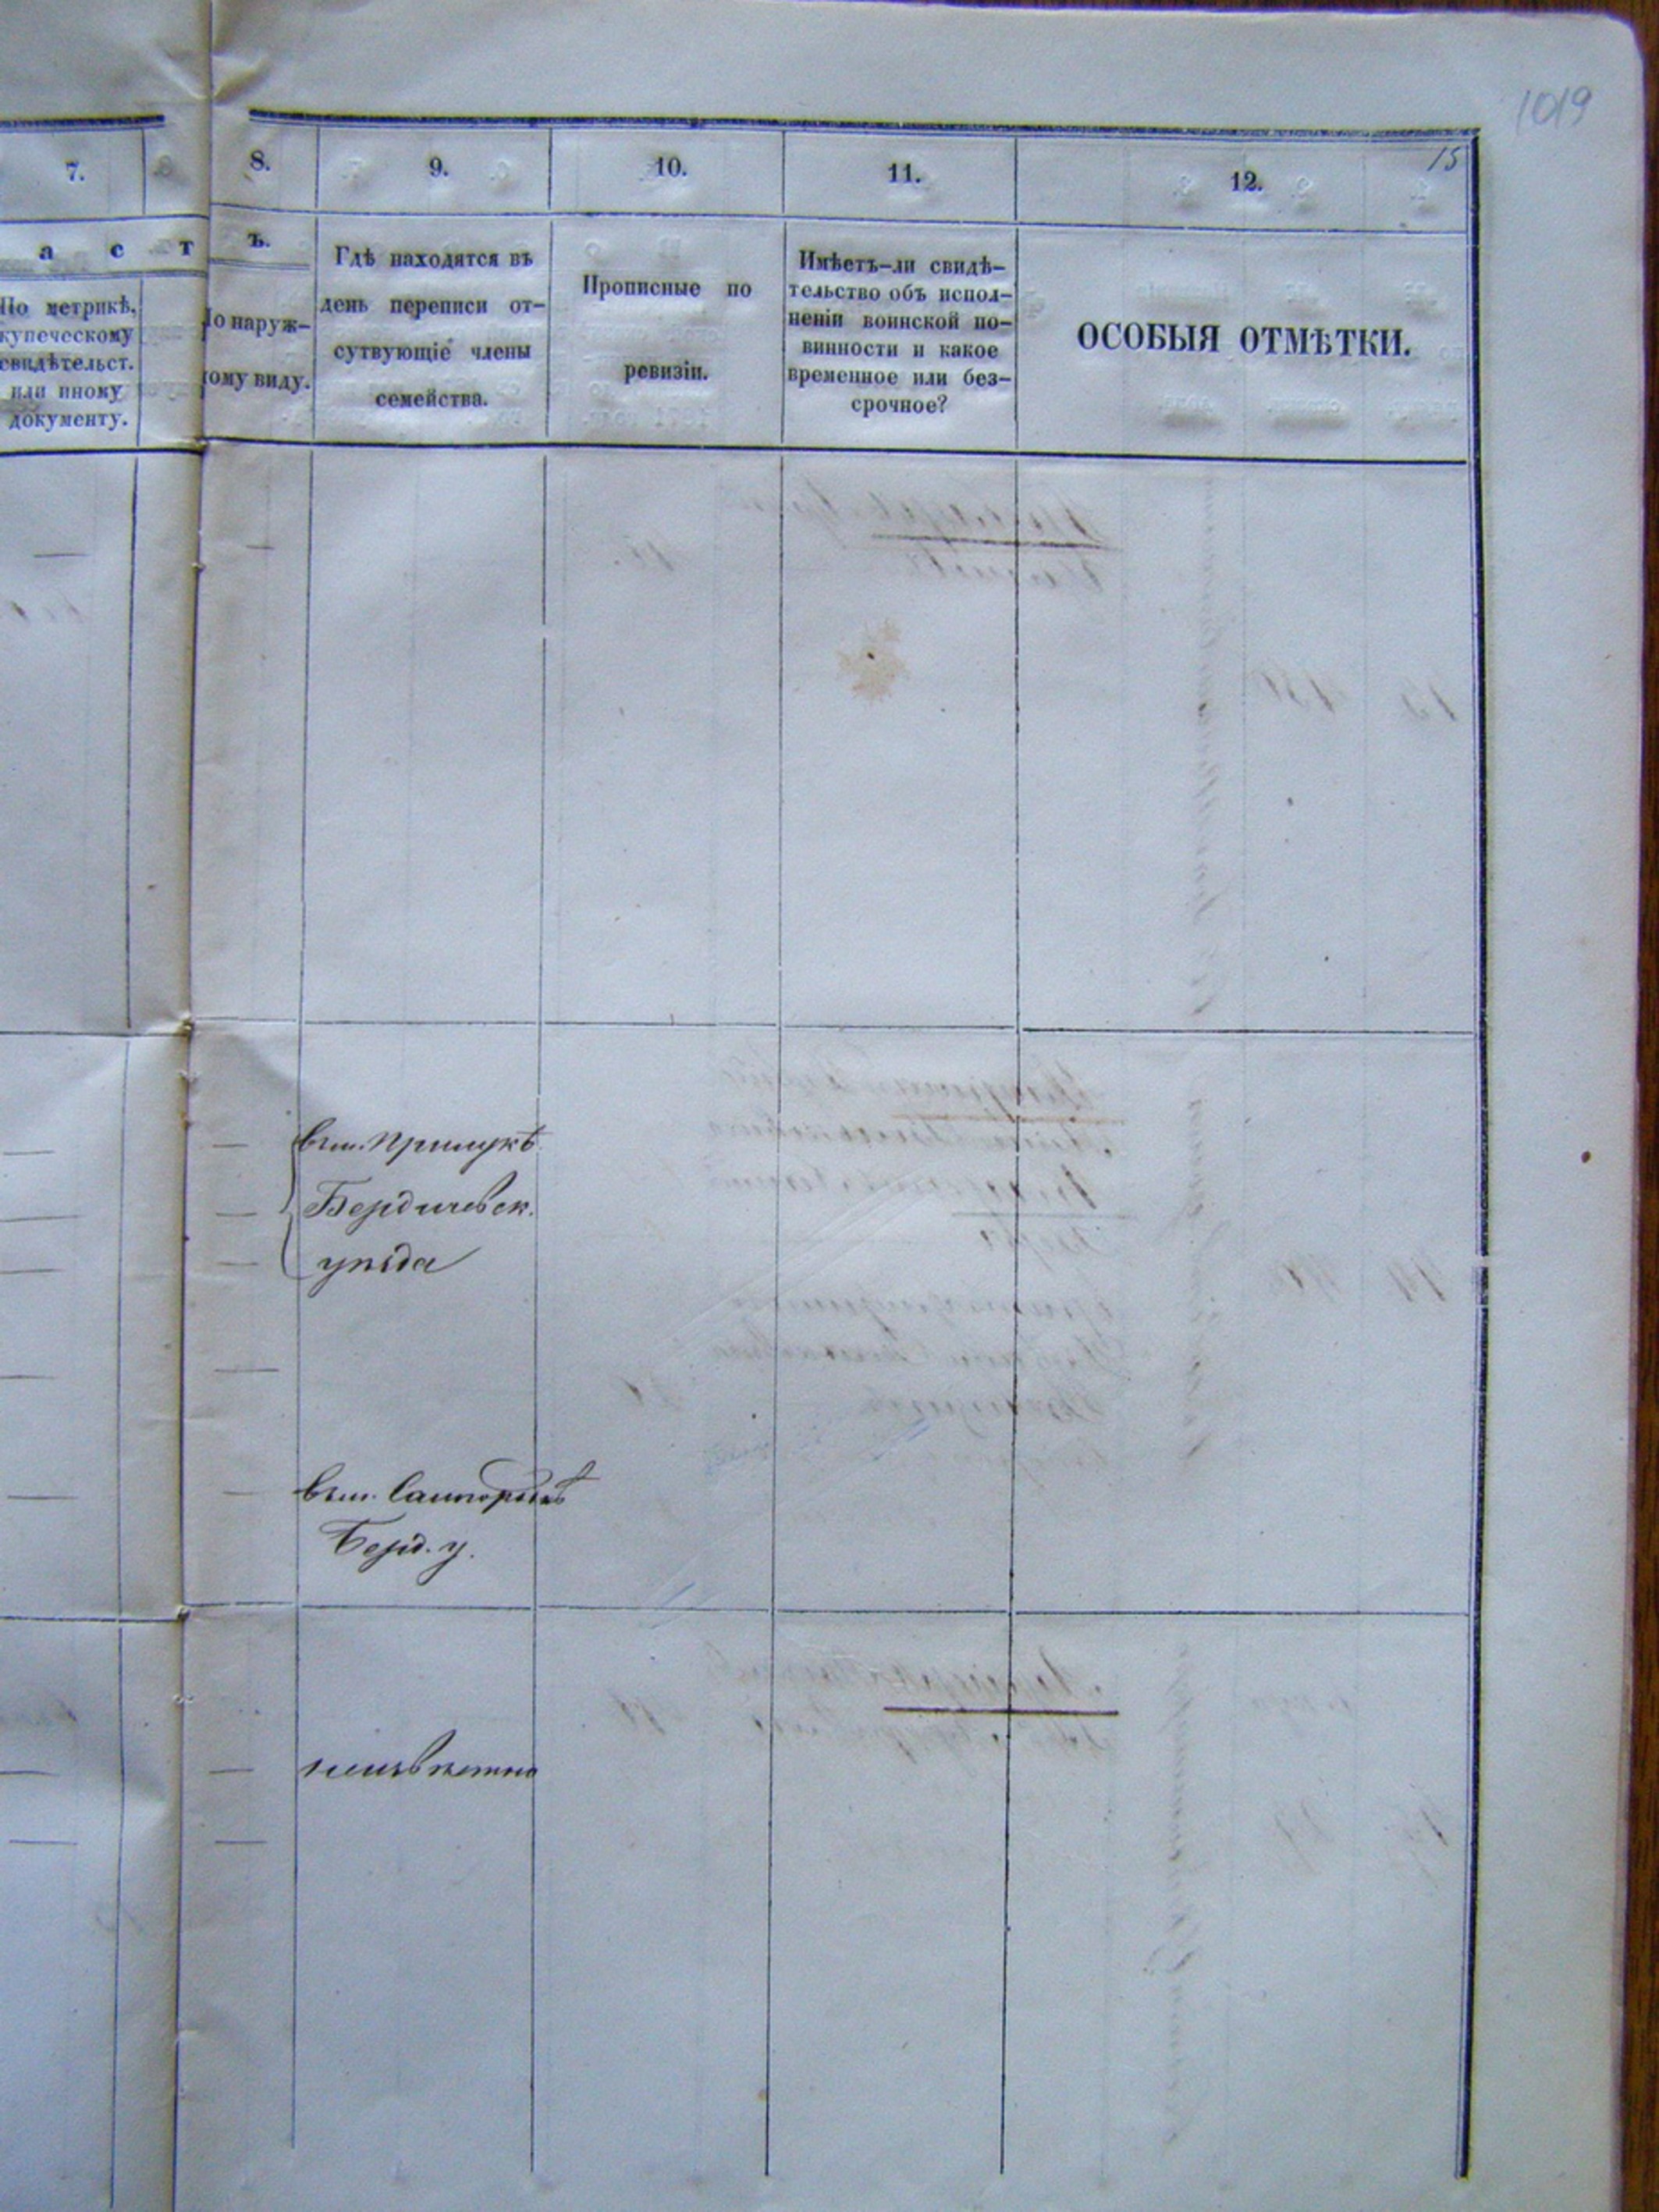 1019
15
7.
8.
9.
10.
11.
12.
а с т ъ.
По метрикѣ,
купеческому
свидѣтельст.
или иному
документу.
По наруж-
ному виду.
Гдѣ находятся въ
день переписи от-
сутвующіе члены
семейства.
Прописные по
ревизіи.
Имѣетъ-ли свидѣ-
тельство объ испол-
неніи воинской по-
винности и какое
временное или без-
срочное?
ОСОБЫЯ ОТМѢТКИ.
въ м. Прилукѣ
Бердичевск.
уѣзда
въ м.
Берд. у.
неизвѣстно